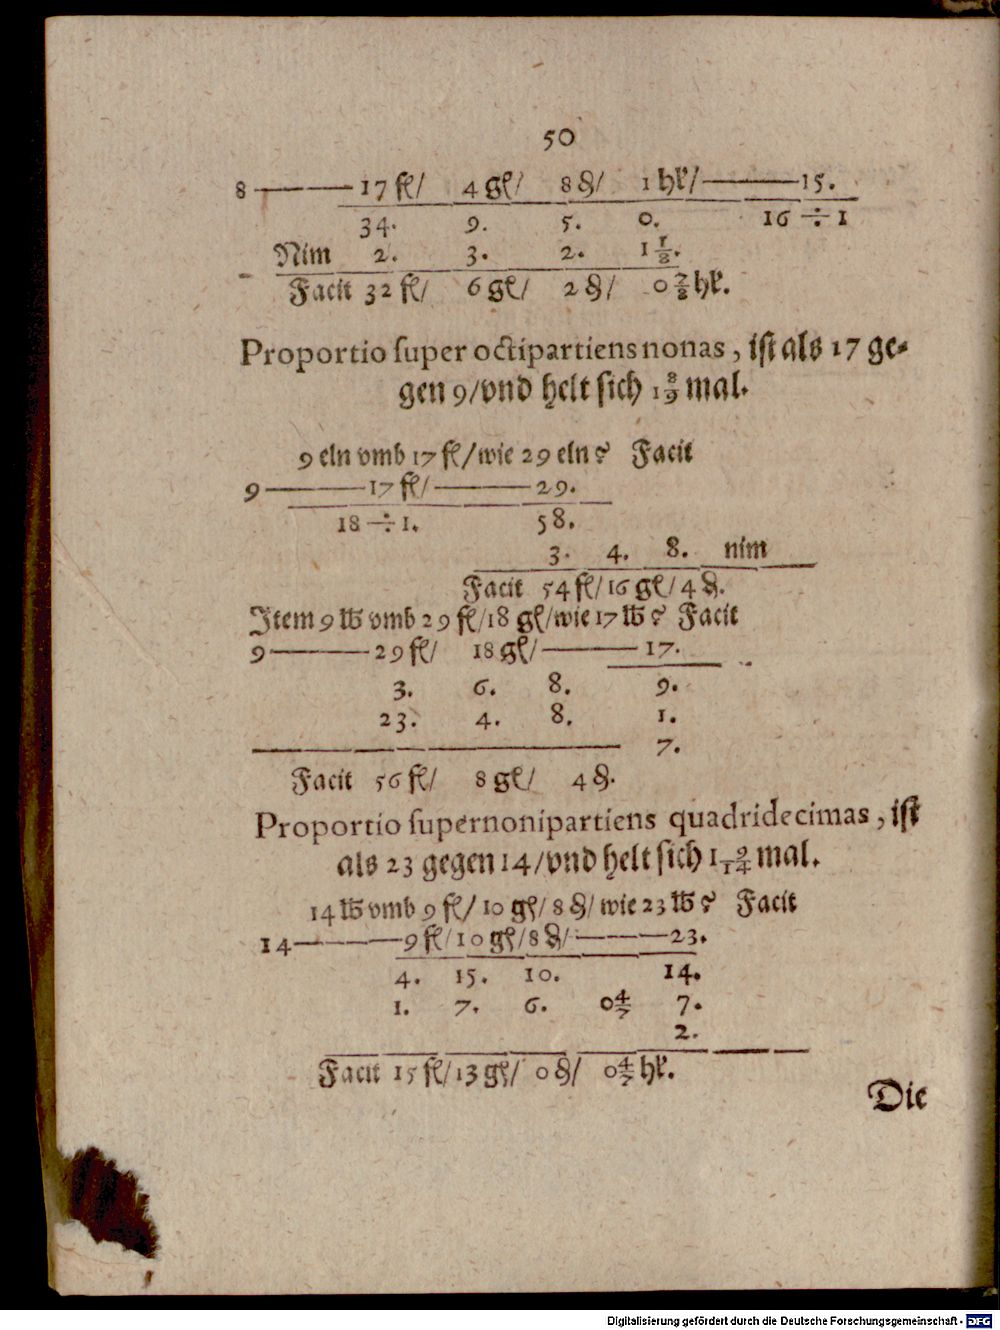 50
8 ——— 17 fl/ 4 gl/ 8 ₰/ 1 hl/ ——— 15.
34. 9. 5. 0. 16 ÷ 1
Nim 2. 3. 2. 1 1/8.
Facit 32 fl/ 6 gl/ 2 ₰/ 0 7/8 hl.
Proportio ſuper octipartiens nonas, iſt als 17 ge-
gen 9/vnd helt ſich 1 8/9 mal.
9 eln vmb 17 fl/wie 29 eln? Facit
9 ——— 17 fl/ ——— 29.
18 ÷ 1. 58.
3. 4. 8. nim
Facit 54 fl/16 gl/4 ₰.
Item 9 ℔ vmb 29 fl/18 gl/wie 17 ℔? Facit
9 ——— 29 fl/ 18 gl/ ——— 17.
3. 6. 8. 9.
23. 4. 8. 1.
7.
Facit 56 fl/ 8 gl/ 4 ₰.
Proportio ſupernonipartiens quadridecimas, iſt
als 23 gegen 14/vnd helt ſich 1 9/14 mal.
14 ℔ vmb 9 fl/ 10 gl/ 8 ₰/ wie 23 ℔? Facit
14 ——— 9 fl/10 gl/8 ₰/ ——— 23.
4. 15. 10. 14.
1. 7. 6. 0 4/7 7.
2.
Facit 15 fl/13 gl/ 0 ₰/ 0 4/7 hl.
Die
Digitalisierung gefördert durch die Deutsche Forschungsgemeinschaft - DFG